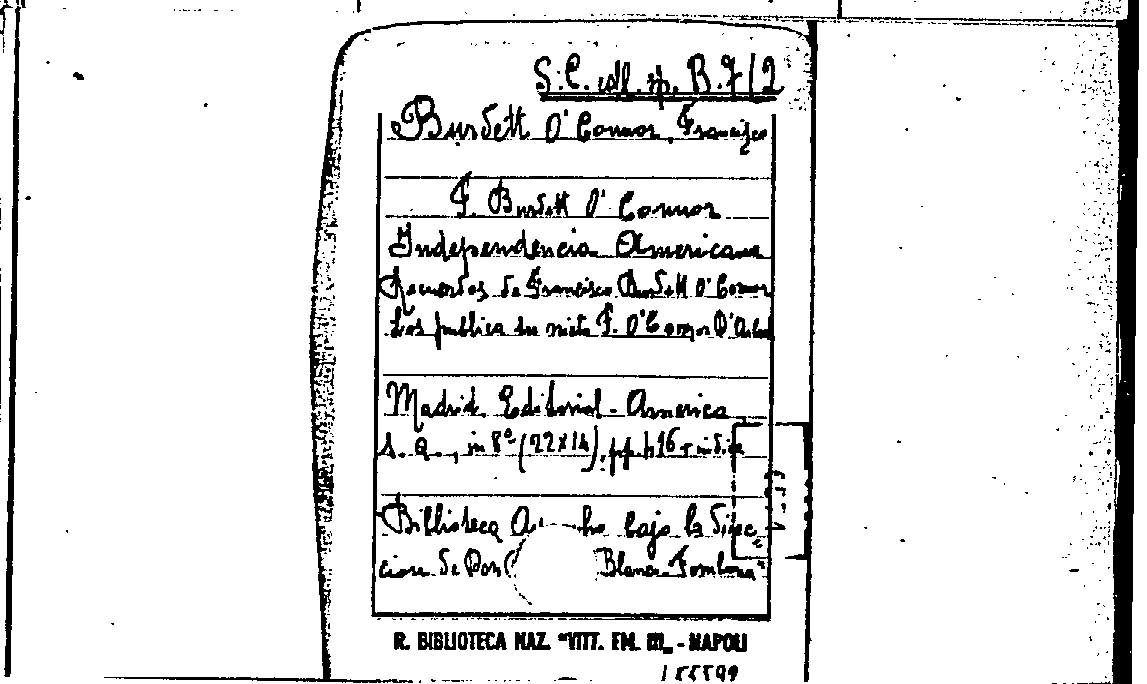 S.C. coll. sp. B. 7/2
Burdett O'Connor, Francisco
F. Burdett O'Connor
Independencia Americana
Recuerdos de Francisco Burdett O'Connor
Los publica su nieto F. O'Connor D'Arlach
Madrid. Editorial-America
s. a., in 8º (22x14), pp. 416 + indice
Biblioteca A ho bajo la direc
cion de Don Blanco Fombona"
R. BIBLIOTECA NAZ. "VITT. EM. III„ - NAPOLI